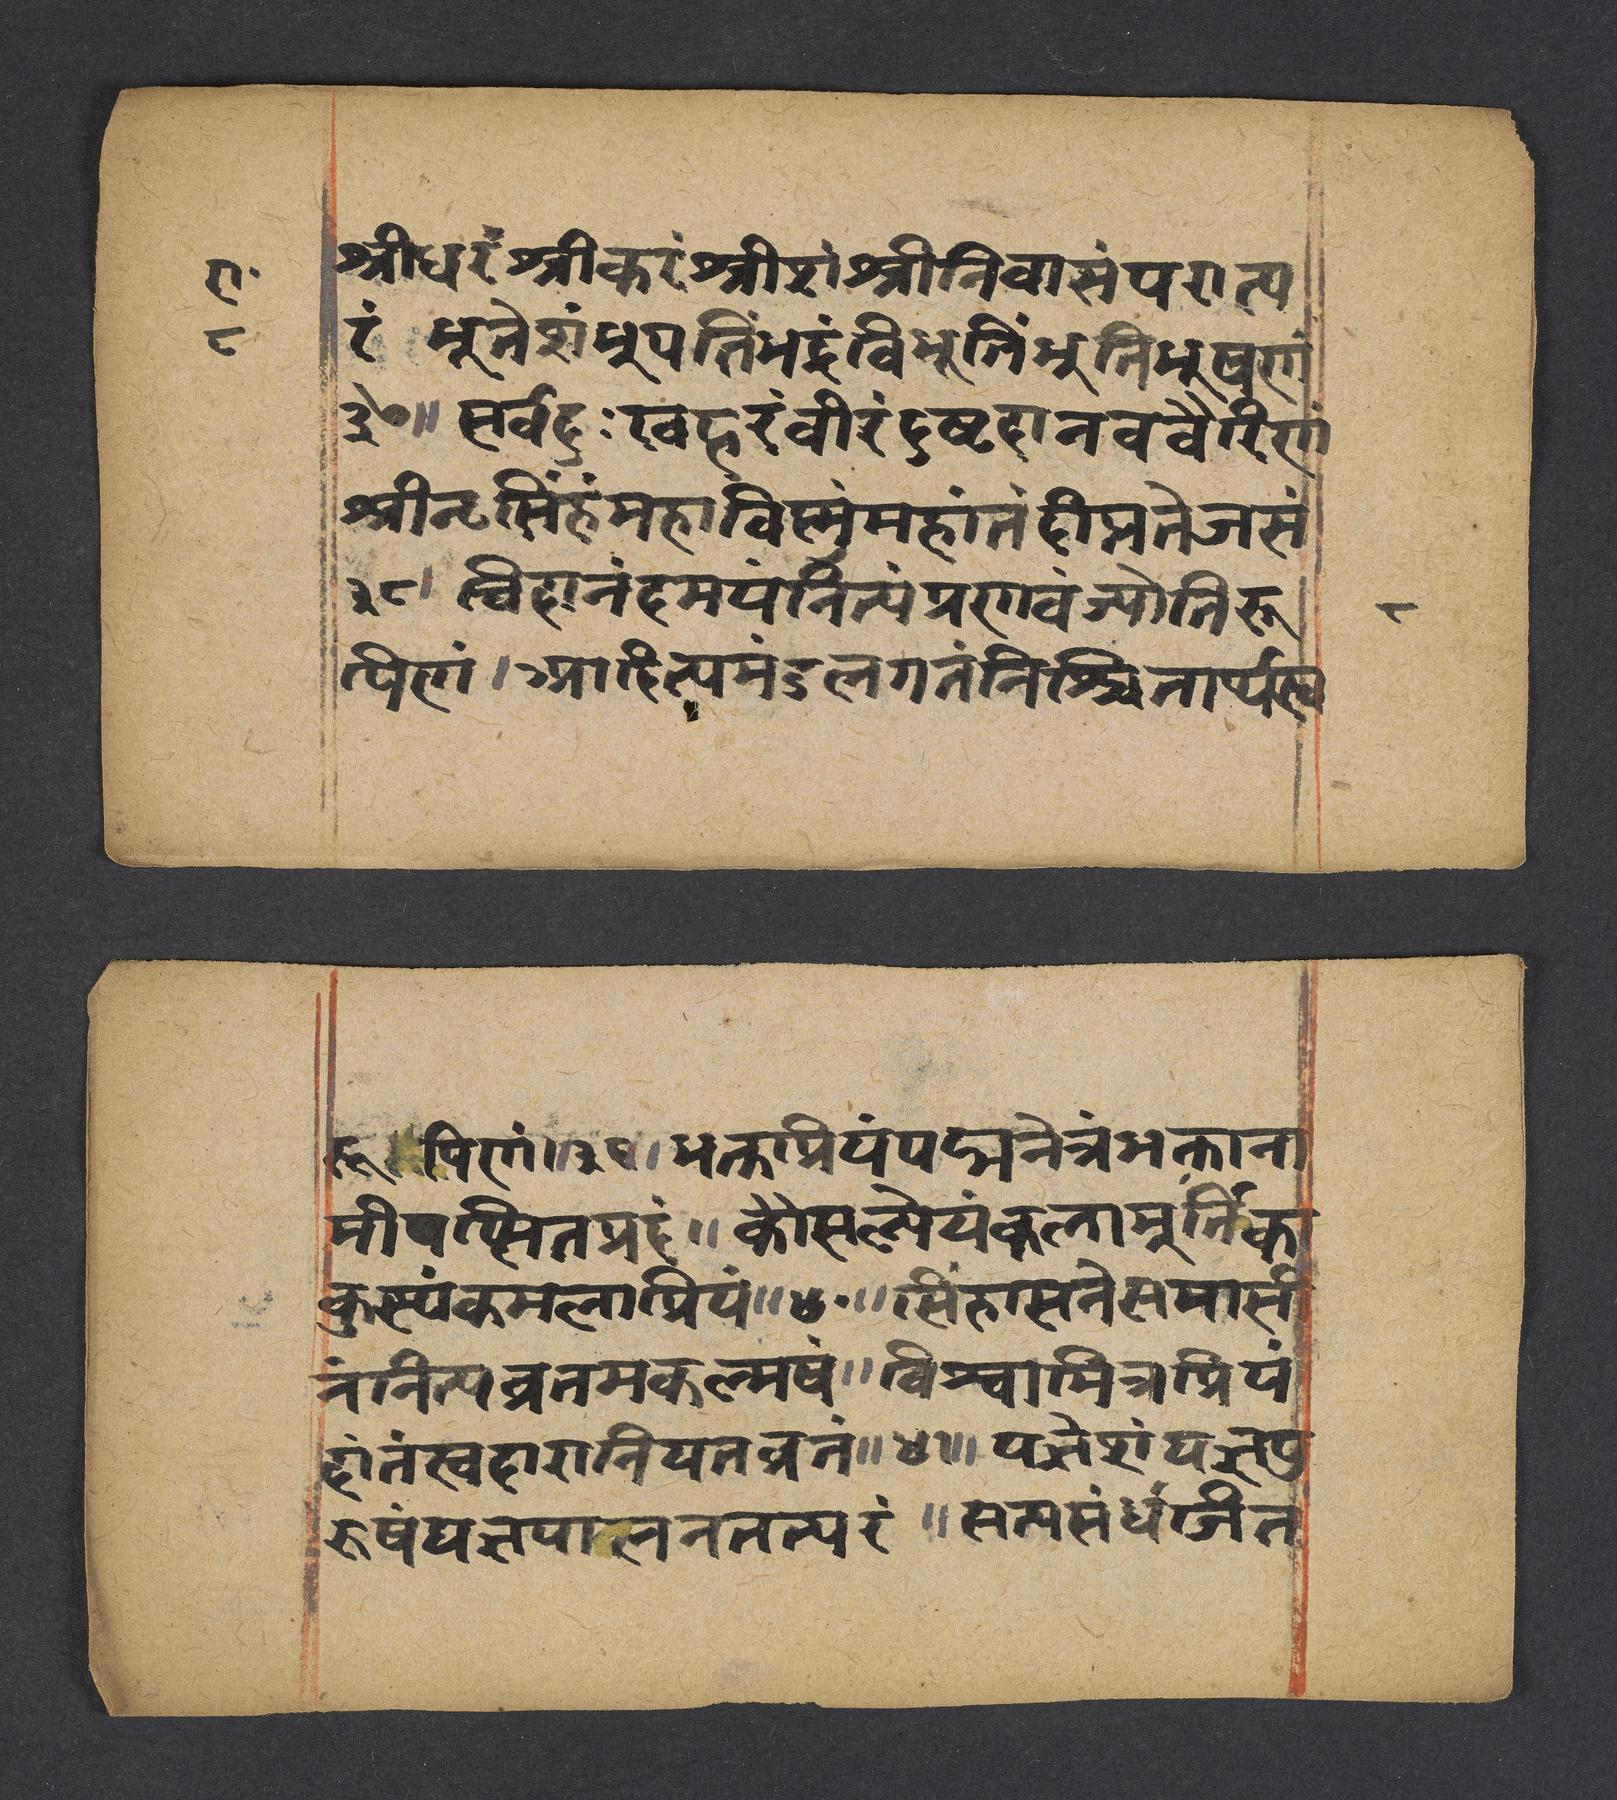 रा॰
८
श्रीधरंश्रीकरंश्रीशंश्रीनिवासंपरात्प
रं भूतेशंभूपतिंभद्रंविभूतिंभूतिभूषणं
३७॥ सर्वदुःखहरंवीरंदुष्टदानववैरिणं
श्रीनृसिंहंमहाविष्णुंमहांतंदीप्ततेजसं
३८। चिदानंदमयंनित्यंप्रणवंज्योतिरू
८
पिणं।आदित्यमंडलगतंनिश्चितार्थस्व
रू पिणं॥३९। भक्तप्रियंपद्मनेत्रंभक्ताना
मीपप्सितप्रदं॥ कौसल्येयंकलामूर्तिंका
कुस्थंकमलाप्रियं॥४॰॥सिंहासनेसमासी
नंनित्यव्रतमकल्मषं॥विश्वामित्रप्रियं
दांतंस्वदारानियतव्रतं॥४१॥यज्ञेशंयज्ञपु
रुषंयज्ञपालनतत्परं ॥सत्यसंधंजित